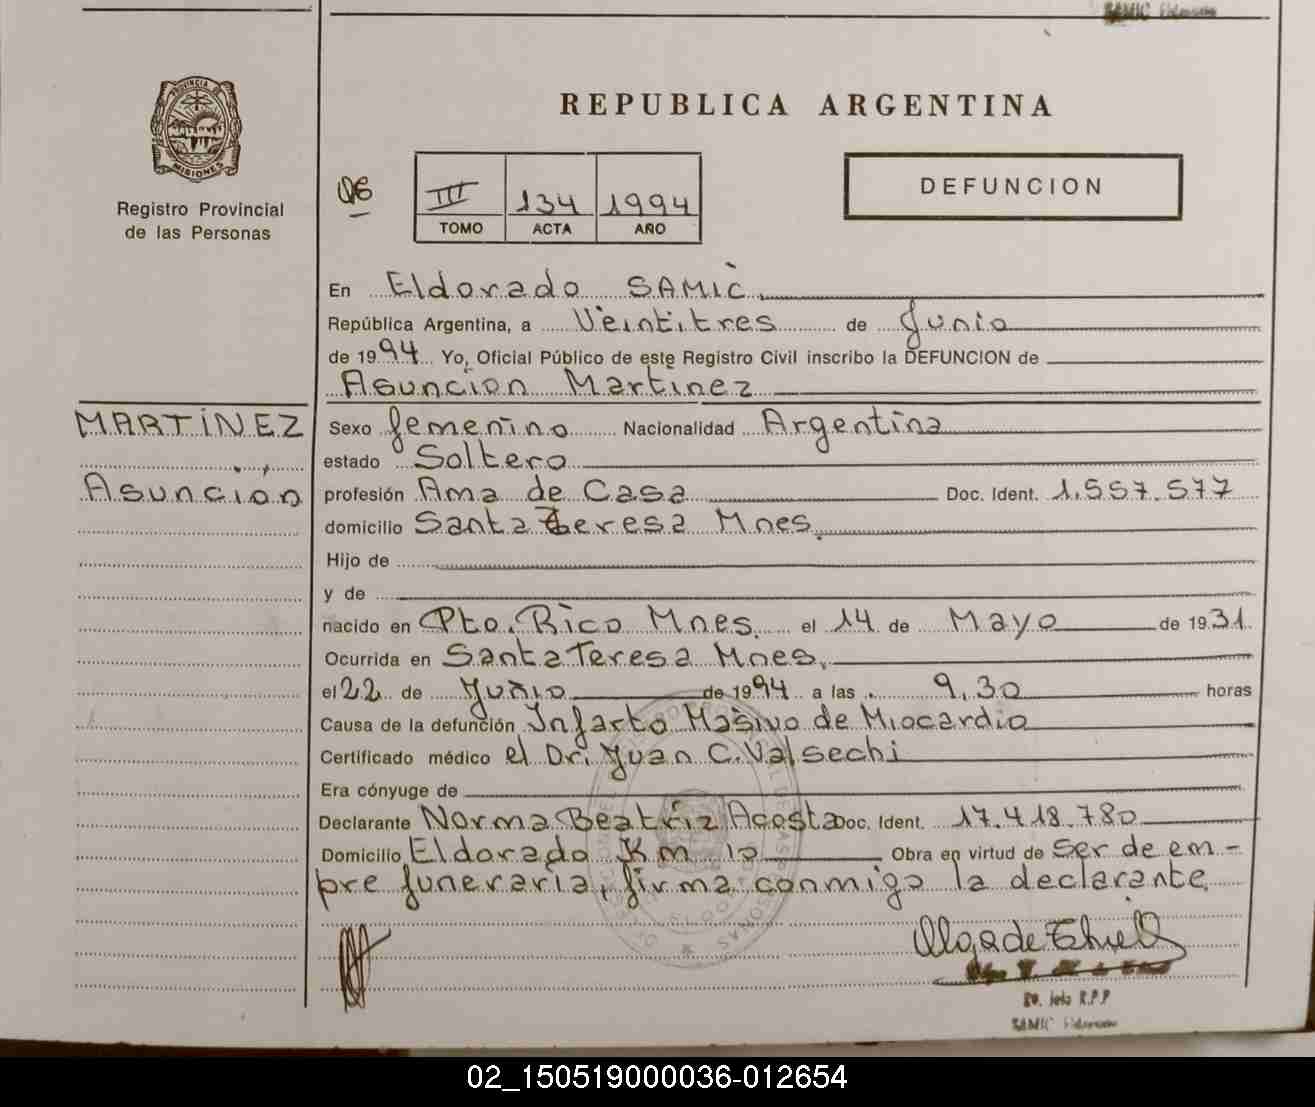 SAMIC Eldorado
PROVINCIA DE
MISIONES
Registro Provincial
de las Personas
REPUBLICA ARGENTINA
III 134 1994
TOMO ACTA AÑO
DEFUNCION
En Eldorado SAMIC
República Argentina, a Veintitres de Junio
de 1994 Yo, Oficial Público de este Registro Civil inscribo la DEFUNCION de
Asuncion Martinez
MARTINEZ
Asunción
Sexo femenino Nacionalidad Argentina
estado Soltero
profesión Ama de Casa Doc. Ident. 1.557.577
domicilio Santa Teresa Mnes.
Hijo de
y de
nacido en Pto. Rico Mnes. el 14 de Mayo de 1931
Ocurrida en Santa Teresa Mnes,
el 22 de Junio de 1994 a las 9,30 horas
Causa de la defunción Infarto Masivo de Miocardio
Certificado médico el Dr. Juan C. Valsechi
Era cónyuge de
Declarante Norma Beatriz Acosta Doc. Ident. 17.418.780
Domicilio Eldorado Km 10 Obra en virtud de Ser de em-
pre funeraria, firma conmigo la declarante
R.P.P
SAMIC Eldorado
02_150519000036-012654